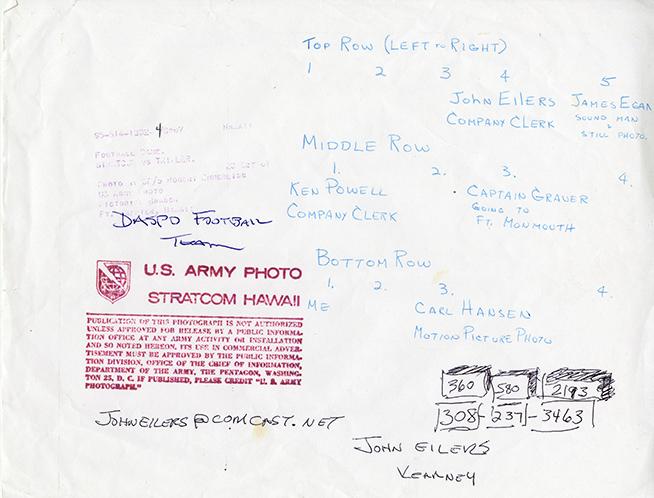 TOP ROW (LEFT TO RIGHT)
1 2 3 4 5
JOHN EILERS JAMES EGAN
COMPANY CLERK SOUND MAN
& STILL PHOTO.
MIDDLE ROW
1. 2. 3. 4.
KEN POWELL CAPTAIN GRAVER
COMPANY CLERK GOING TO
FT. MONMOUTH
BOTTOM ROW
1. 2. 3. 4.
ME CARL HANSEN
MOTION PICTURE PHOTO
HAWAII
FOOTBALL GAME.
STRATCOM VS
PHOTO BY SP/5 ROBERT
US ARMY PHOTO
DASPO FOOTBALL
TEAM
U.S. ARMY PHOTO
STRATCOM HAWAII
PUBLICATION OF THIS PHOTOGRAPH IS NOT AUTHORIZED
UNLESS APPROVED FOR RELEASE BY A PUBLIC INFORMA-
TION OFFICE AT ANY ARMY ACTIVITY OR INSTALLATION
AND SO NOTED HEREON. ITS USE IN COMMERCIAL ADVER-
TISEMENT MUST BE APPROVED BY THE PUBLIC INFORMA-
TION DIVISION, OFFICE OF THE CHIEF OF INFORMATION,
DEPARTMENT OF THE ARMY, THE PENTAGON, WASHING-
TON 25, D. C. IF PUBLISHED, PLEASE CREDIT "U. S. ARMY
PHOTOGRAPH."
360 580 2193
308-237-3463
JOHNEILERS@COMCAST.NET
JOHN EILERS
KEARNEY